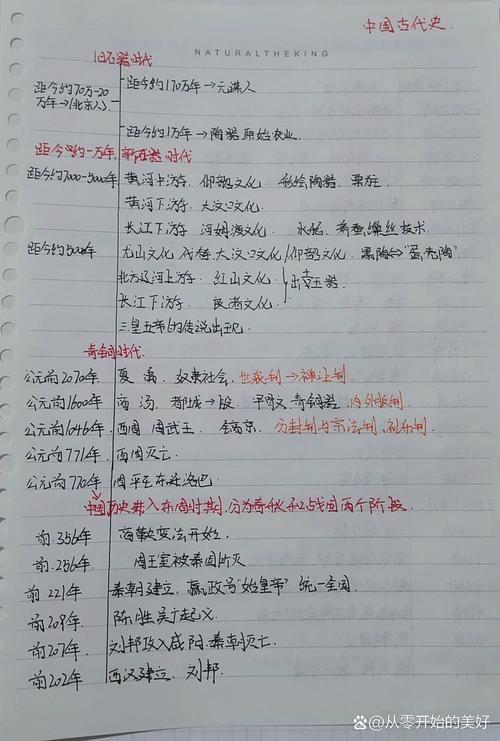 中国古代史.
NATURALTHEKING
旧石器时代
距今约170万年→元谋人
距今约70万-20万年→(北京人).
距今约1万年→陶器 原始农业
距今约一万年, 新石器时代
距今约7000-5000年 黄河中游. 仰韶文化 彩绘陶器. 粟.
黄河下游. 大汶口文化.
长江下游 河姆渡文化 水稻. 养蚕缫丝技术.
距今约5000年 龙山文化 代替 大汶口文化/仰韶文化 黑陶→"蛋壳陶"
北方辽河上游 红山文化 出土玉器
长江下游 良渚文化
三皇五帝的传说出现
青铜时代.
公元前2070年 夏 禹. 奴隶社会, 世袭制→禅让制
公元前1600年 商 汤. 都城→殷. 甲骨文 青铜器. 内外服制
公元前1046年 西周 周武王. 镐京. 分封制与宗法制. 礼乐制
公元前771年 西周灭亡.
公元前770年 周平王东迁洛邑
中国历史进入东周时期,分为春秋和战国两个阶段.
前.356年 商鞅变法开始.
前.256年 周王室被秦国所灭
前 221年 秦朝建立. 嬴政号"始皇帝" 统一全国.
前209年 陈胜吴广起义.
前207年 刘邦攻入咸阳.秦朝灭亡.
前202年 西汉建立. 刘邦.
@从零开始的美好